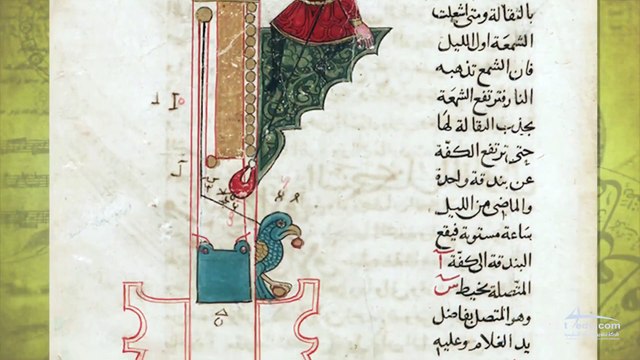 بالثقالة ومتى اشعلت
الشمعة اول الليل
فان الشمع تذهبه
النار فترتفع الشمعة
بجذب الثقالة لها
حتى ترتفع الكفة
عن بندقة واحدة
والماضى من الليل
ساعة مستوية فيقع
البندقة الى الكفة آ
المتصلة بخيط س
وهو المتصل بفاضل
يد الغلام وعليه